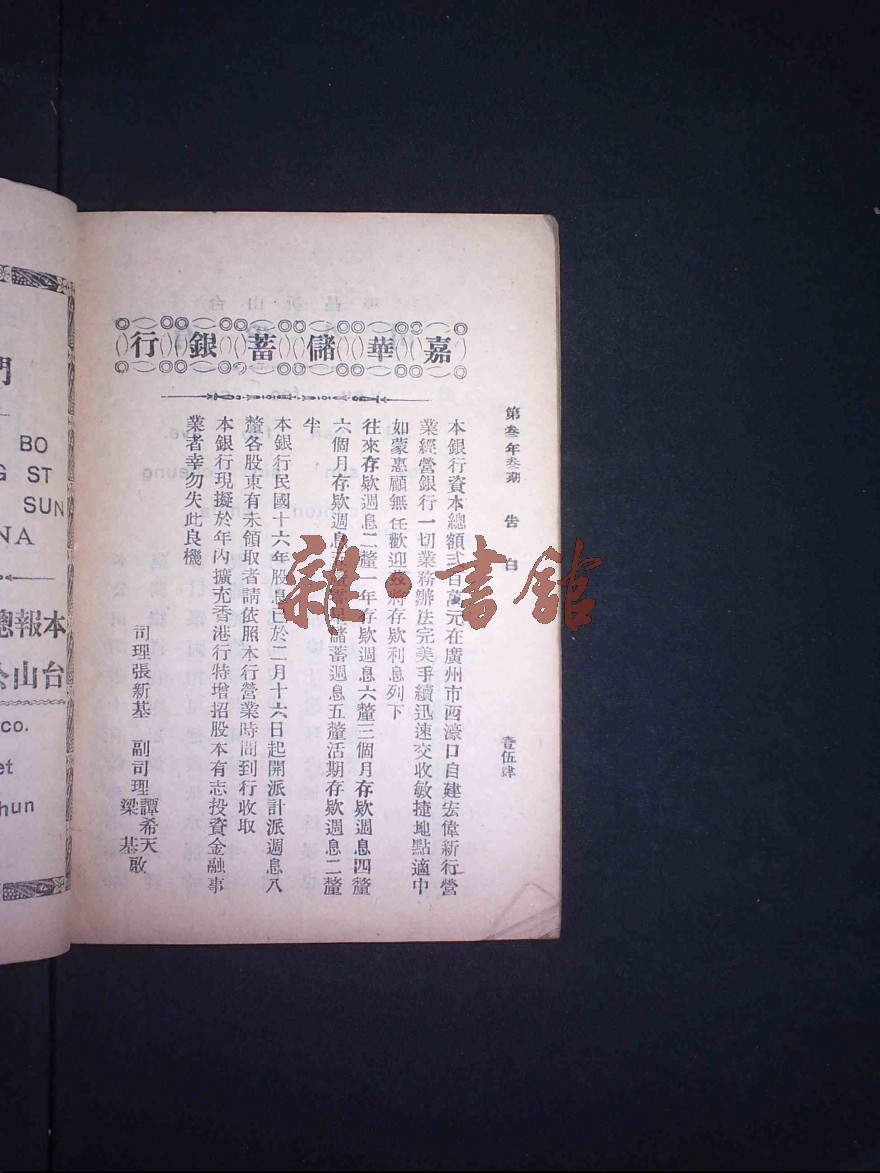 第叁年叁期　告白　壹伍肆
嘉華儲蓄銀行
本銀行資本總額弍百萬元在廣州市西濠口自建宏偉新行營
業經營銀行一切業務辦法完美手續迅速交收敏捷地點適中
如蒙惠顧無任歡迎茲將存欵利息列下
往來存欵週息二釐一年存欵週息六釐三個月存欵週息四釐
六個月存欵週息五釐 儲蓄週息五釐活期存欵週息二釐
半
本銀行民國十六年股息已於二月十六日起開派計派週息八
釐各股東有未領取者請依照本行營業時間到行收取
本銀行現擬於年內擴充香港行特增招股本有志投資金融事
業者幸勿失此良機
司理張新基　副司理譚希天
梁基敢
門
BO
G ST
SUN
NA
本報總
台山公
co.
et
hun
雜·書館